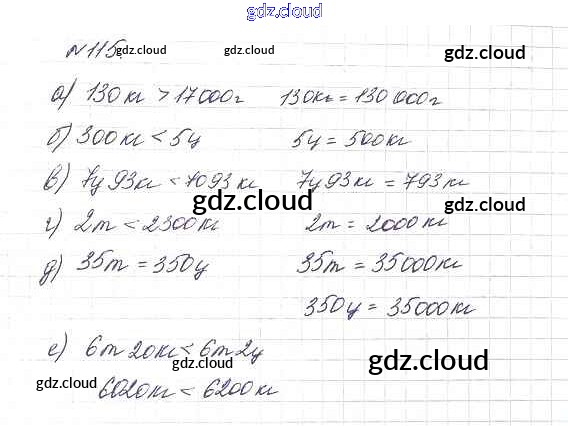 gdz.cloud
№ 115. gdz.cloud gdz.cloud gdz.cloud
а) 130 кг > 17000 г 130 кг = 130 000 г
б) 300 кг < 5 ц 5 ц = 500 кг
в) 7 ц 93 кг < 7093 кг 7 ц 93 кг = 793 кг
gdz.cloud gdz.cloud
г) 2 т < 2300 кг 2 т = 2000 кг
д) 35 т = 350 ц 35 т = 35000 кг
350 ц = 35000 кг
е) 6 т 20 кг < 6 т 2 ц
gdz.cloud gdz.cloud gdz.cloud
6020 кг < 6200 кг